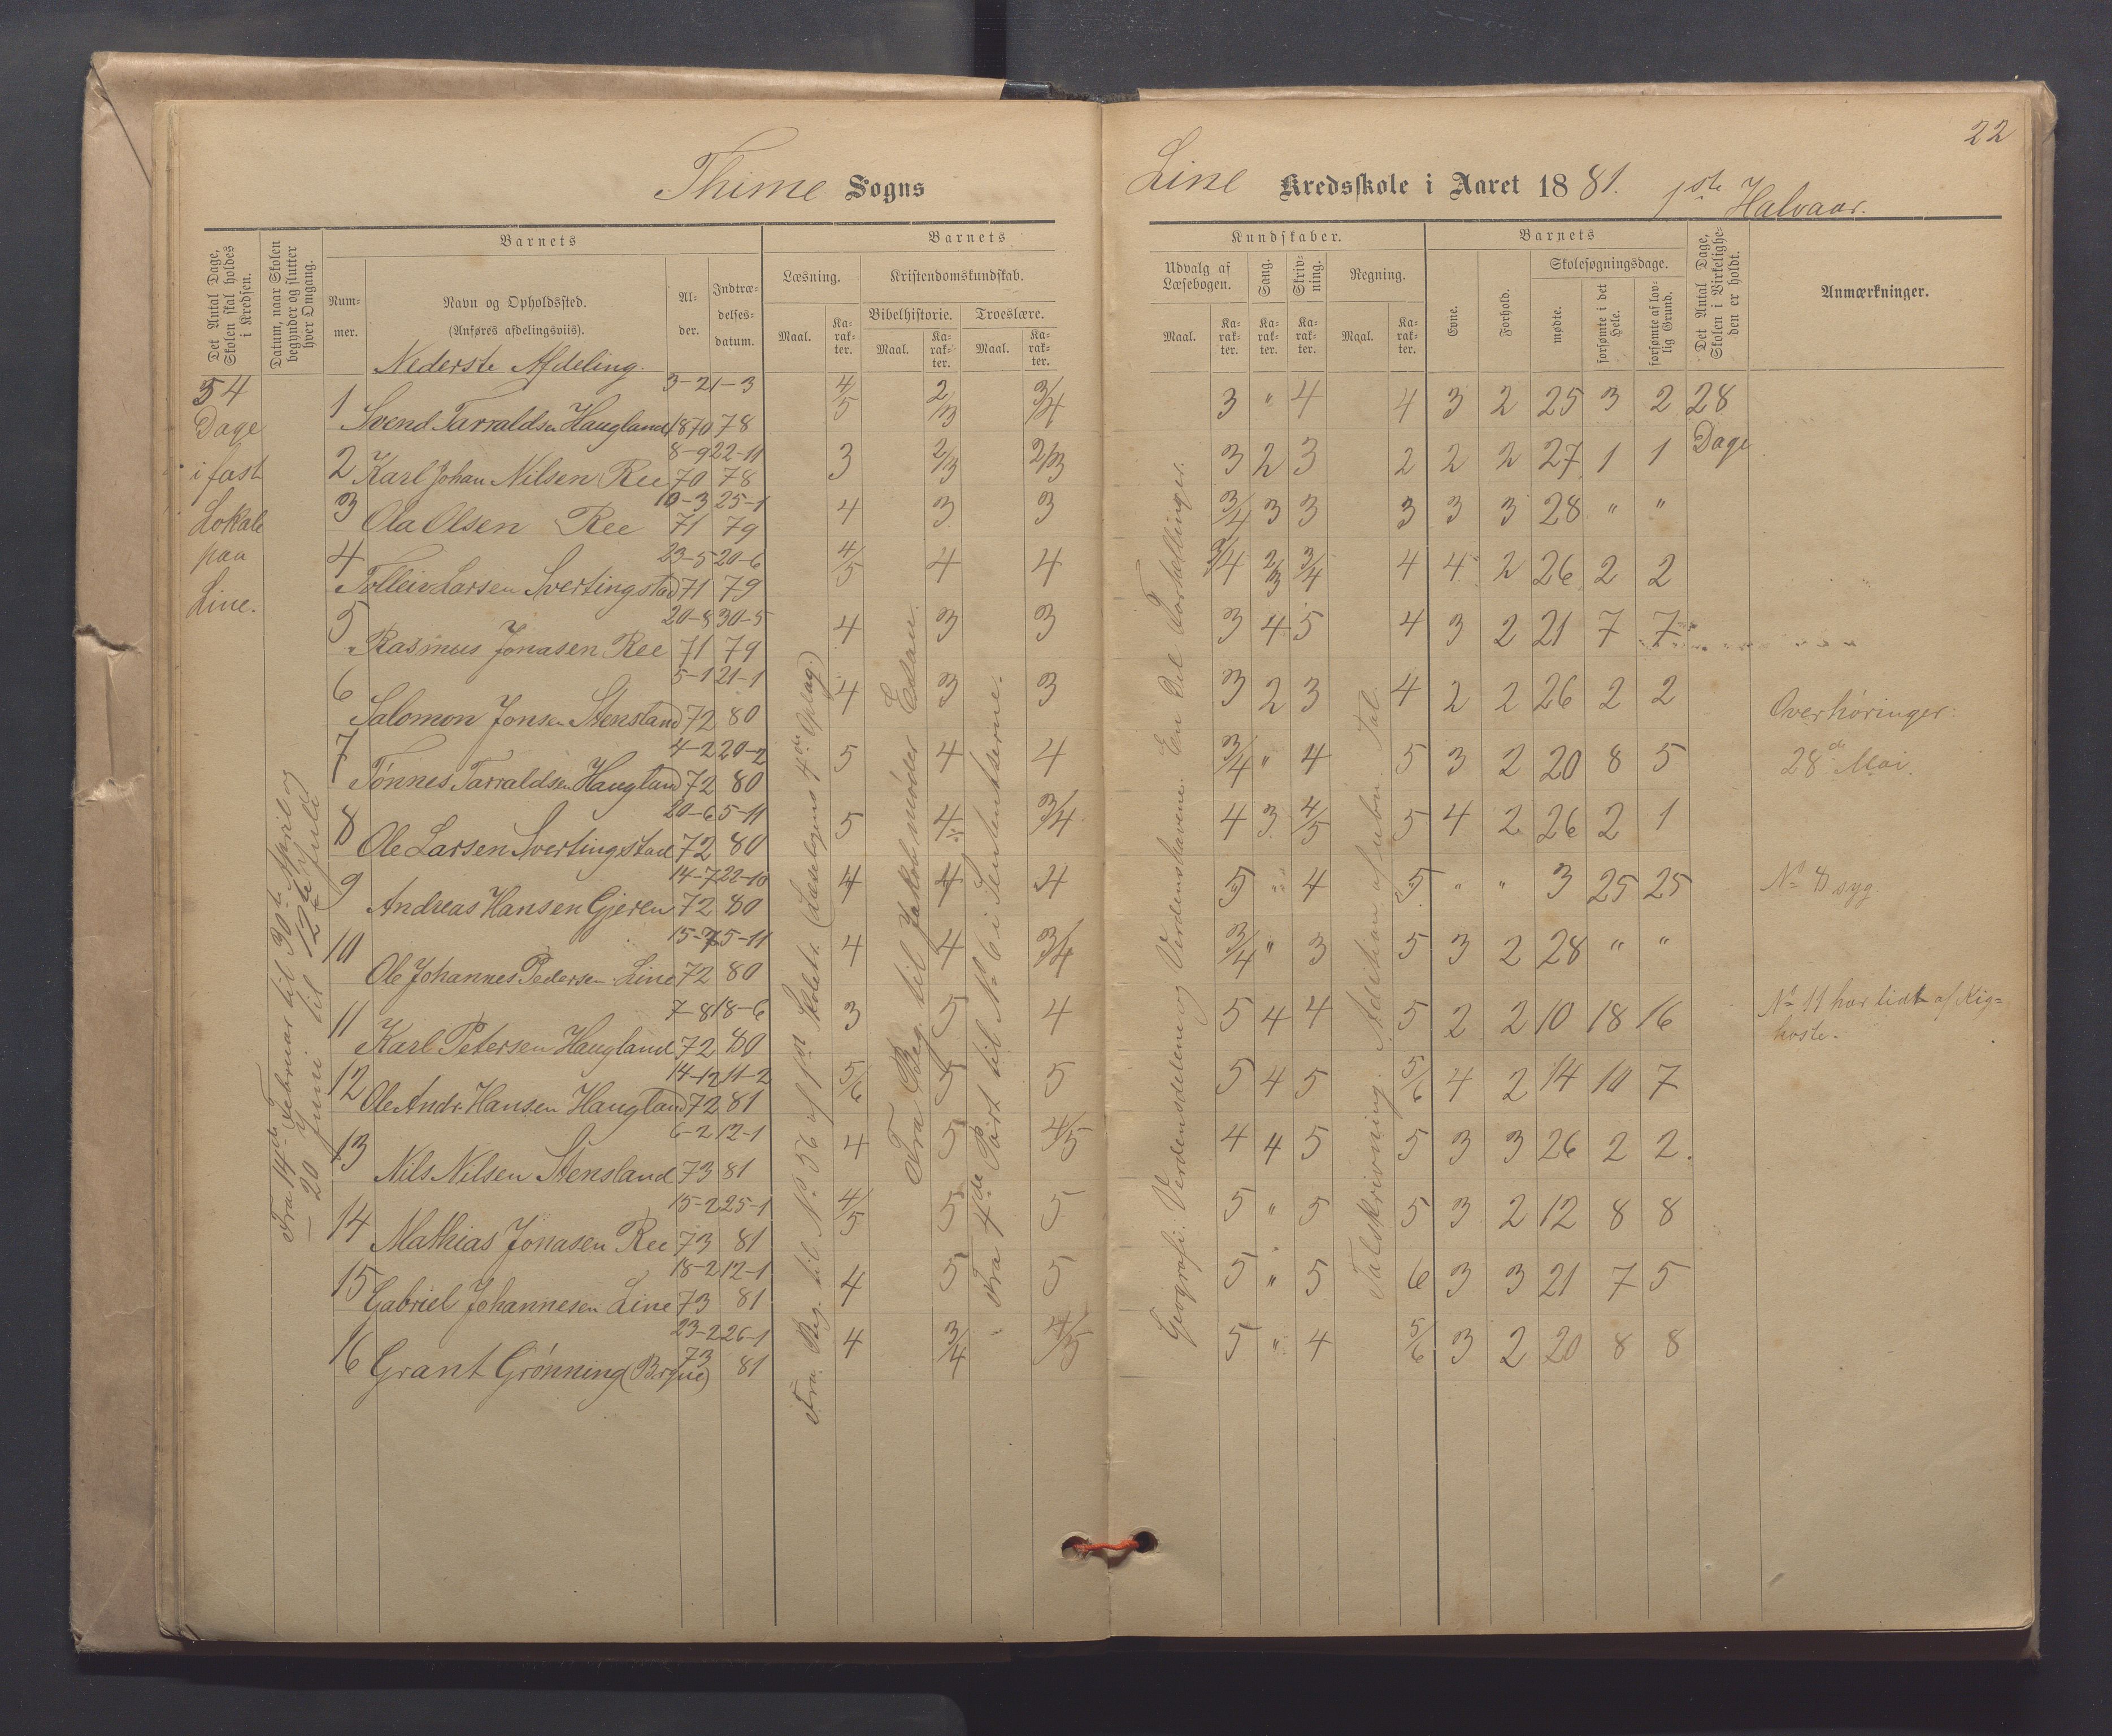 22
Thime Sogns
Line Kredsskole i Aaret 1881. 1ste Halvaar.
Det Antal Dage, Skolen skal holdes i Kredsen.
Datum, naar Skolen begynder og slutter hver Omgang.
Barnets
Num-mer.
Navn og Opholdssted.
(Anføres afdelingsviis).
Al-der.
Indtræ-delses-datum.
Barnets
Læsning.
Maal.
Ka-rak-ter.
Kristendomskundskab.
Bibelhistorie.
Maal.
Ka-rak-ter.
Troeslære.
Maal.
Ka-rak-ter.
Kundskaber.
Udvalg af Læsebogen.
Maal.
Ka-rak-ter.
Sang.
Ka-rak-ter.
Skriv-ning.
Ka-rak-ter.
Regning.
Maal.
Ka-rak-ter.
Barnets
Evne.
Forhold.
Skolesøgningsdage.
mødte.
forsømte i det Hele.
forsømte af lov-lig Grund.
Det Antal Dage, Skolen i Virkelighe-den er holdt.
Anmærkninger.
Nederste Afdeling.
54 Dage i fast Lokale paa Line.
Fra 14de Februar til 30te April og
— 20 Juni til 12te Juli
1 Svend Tarraldsen Haugland 3-2 1870 1-3 78 4/5 2/3 3/4 3 " 4 4 3 2 25 3 2 28 Dage
2 Karl Johan Nilsen Ree 8-9 70 22-11 78 3 2/3 2/3 3 2 3 2 2 2 27 1 1
3 Ola Olsen Ree 10-3 71 25-1 79 4 3 3 3/4 3 3 3 3 3 28 " "
4 Tolleiv Larsen Svertingstad 23-5 71 20-6 79 4/5 4 4 3/4 2/3 3/4 4 4 2 26 2 2
5 Rasmus Jonasen Ree 20-8 71 30-5 79 4 3 3 3 4 5 4 3 2 21 7 7
6 Salomon Jonsen Stensland 5-1 72 21-1 80 4 3 3 3 2 3 4 2 2 26 2 2
7 Tønnes Tarraldsen Haugland 4-2 72 20-2 80 5 4 4 3/4 " 4 5 3 2 20 8 5
8 Ole Larsen Svertingstad 20-6 72 5-11 80 5 4÷ 3/4 4 3 4/5 5 4 2 26 2 1
9 Andreas Hansen Gjeren 14-7 72 22-10 80 4 4 4 5 " 4 5 " " 3 25 25
10 Ole Johannes Pedersen Line 15-7 72 5-11 80 4 4 3/4 3/4 " 3 5 3 2 28 " "
11 Karl Petersen Haugland 7-8 72 18-6 80 3 5 4 5 4 4 5 2 2 10 18 16
12 Ole Andr. Hansen Haugland 14-12 72 11-2 81 5/6 5 5 5 4 5 5/6 4 2 14 10 7
13 Nils Nilsen Stensland 6-2 73 12-1 81 4 5 4/5 4 4 5 5 3 3 26 2 2.
14 Mathias Jonasen Ree 15-2 73 25-1 81 4/5 5 5 5 " 5 5 3 2 12 8 8
15 Gabriel Johannesen Line 18-2 73 12-1 81 4 5 5 5 " 5 6 3 3 21 7 5
16 Grant Grønning 23-2 73 26-1 81 4 3/4 4/5 5 " 4 5/6 3 2 20 8 8
Fra Beg. til No 36 af 1ste Skoletr. (Læsebogens 4de Oplag.)
Fra Beg. til Jakob møder Esau.
Fra 4de Part til No 6 i Sententserne.
Geografi: Verdensdelene og Verdenshavene. En Del Fortællinger.
Talskrivning. Addition af ubn. Tal.
Overhøringer:
28de Mai.
No 8 syg.
No 11 har lidt af Kig=
hoste.